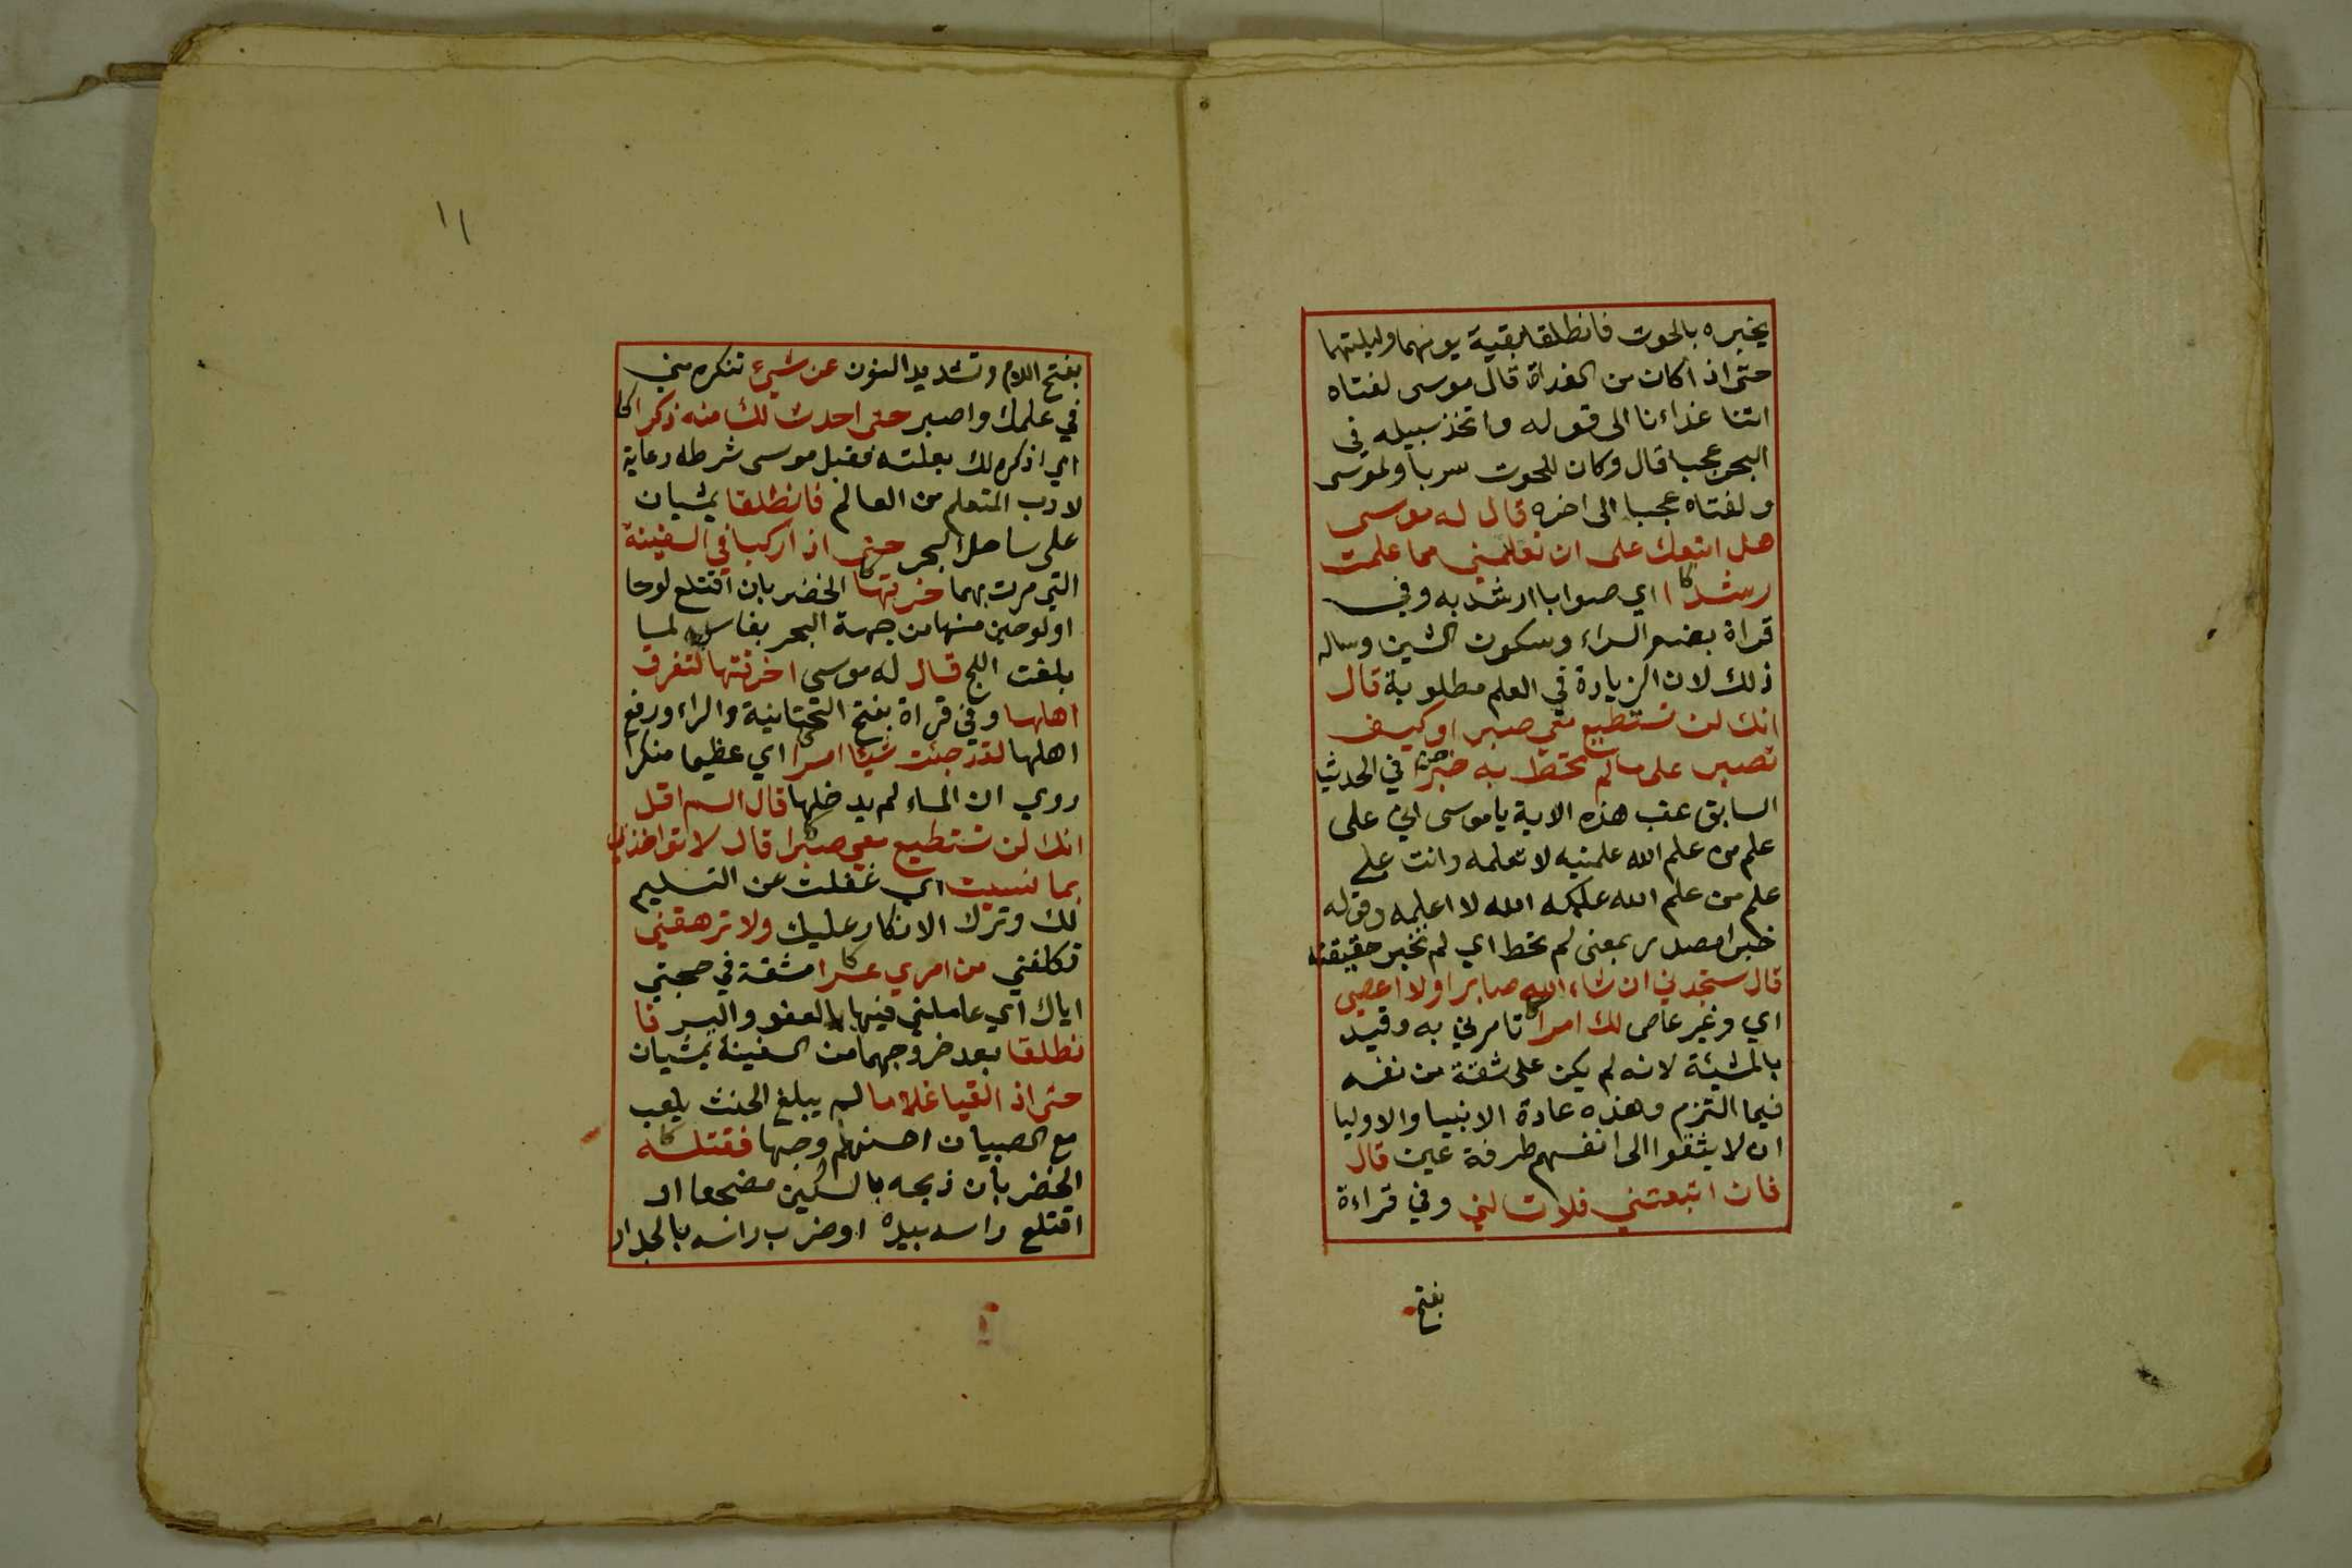 يخبره بالحوت فانطلقا بقية يومهما وليلتهما
حتى اذا كان من الغداة قال موسى لفتاه
اتنا غداءنا الى قوله واتخذ سبيله في
البحر عجبا قال وكان للحوت سربا ولموسى
ولفتاه عجبا الى اخره قال له موسى
هل اتبعك على ان تعلمني مما علمت
رشدا اي صوابا ارشد به وفي
قراة بضم الراء وسكون الشين وساله
ذلك لان الزيادة في العلم مطلوبة قال
انك لن تستطيع معي صبرا وكيف
تصبر على ما لم تحط به خبرا في الحديث
السابق عقب هذه الاية يا موسى اني على
علم من علم الله علمنيه لا تعلمه وانت على
علم من علم الله علمكه الله لا اعلمه وقوله
خبرا مصدر بمعنى لم تحط اي لم تخبر حقيقته
قال ستجدني ان شاء الله صابرا ولا اعصي
اي وغير عاص لك امرا تامرني به وقيد
بالمشيئة لانه لم يكن على ثقة من نفسه
فيما التزم وهذه عادة الانبيا والاوليا
ان لا يثقوا الى انفسهم طرفة عين قال
فان اتبعتني فلا تسالني وفي قراءة
بفتح
١١
بفتح اللام وتشديد النون عن شيئ تنكره مني
في علمك واصبر حتى احدث لك منه ذكرا
اي اذكره لك بعلته فقبل موسى شرطه رعاية
لادب المتعلم من العالم فانطلقا يمشيان
على ساحل البحر حتى اذا ركبا في السفينة
التي مرت بهما خرقها الخضر بان اقتلع لوحا
او لوحين منها من جهة البحر بفاس لما
بلغت اللج قال له موسى اخرقتها لتغرق
اهلها وفي قراة بفتح التحتانية والراء ورفع
اهلها لقد جئت شيئا امرا اي عظيما منكرا
روي ان الماء لم يدخلها قال الم اقل
انك لن تستطيع معي صبرا قال لا تؤاخذني
بما نسيت اي غفلت عن التسليم
لك وترك الانكار عليك ولا ترهقني
تكلفني من امري عسرا مشقة في صحبتي
اياك اي عاملني فيها بالعفو واليسر فا
نطلقا بعد خروجهما من السفينة يمشيان
حتى اذا لقيا غلاما لم يبلغ الحنث يلعب
مع الصبيان احسنهم وجها فقتله
الخضر بان ذبحه بالسكين مضجعا او
اقتلع راسه بيده او ضرب راسه بالجدار